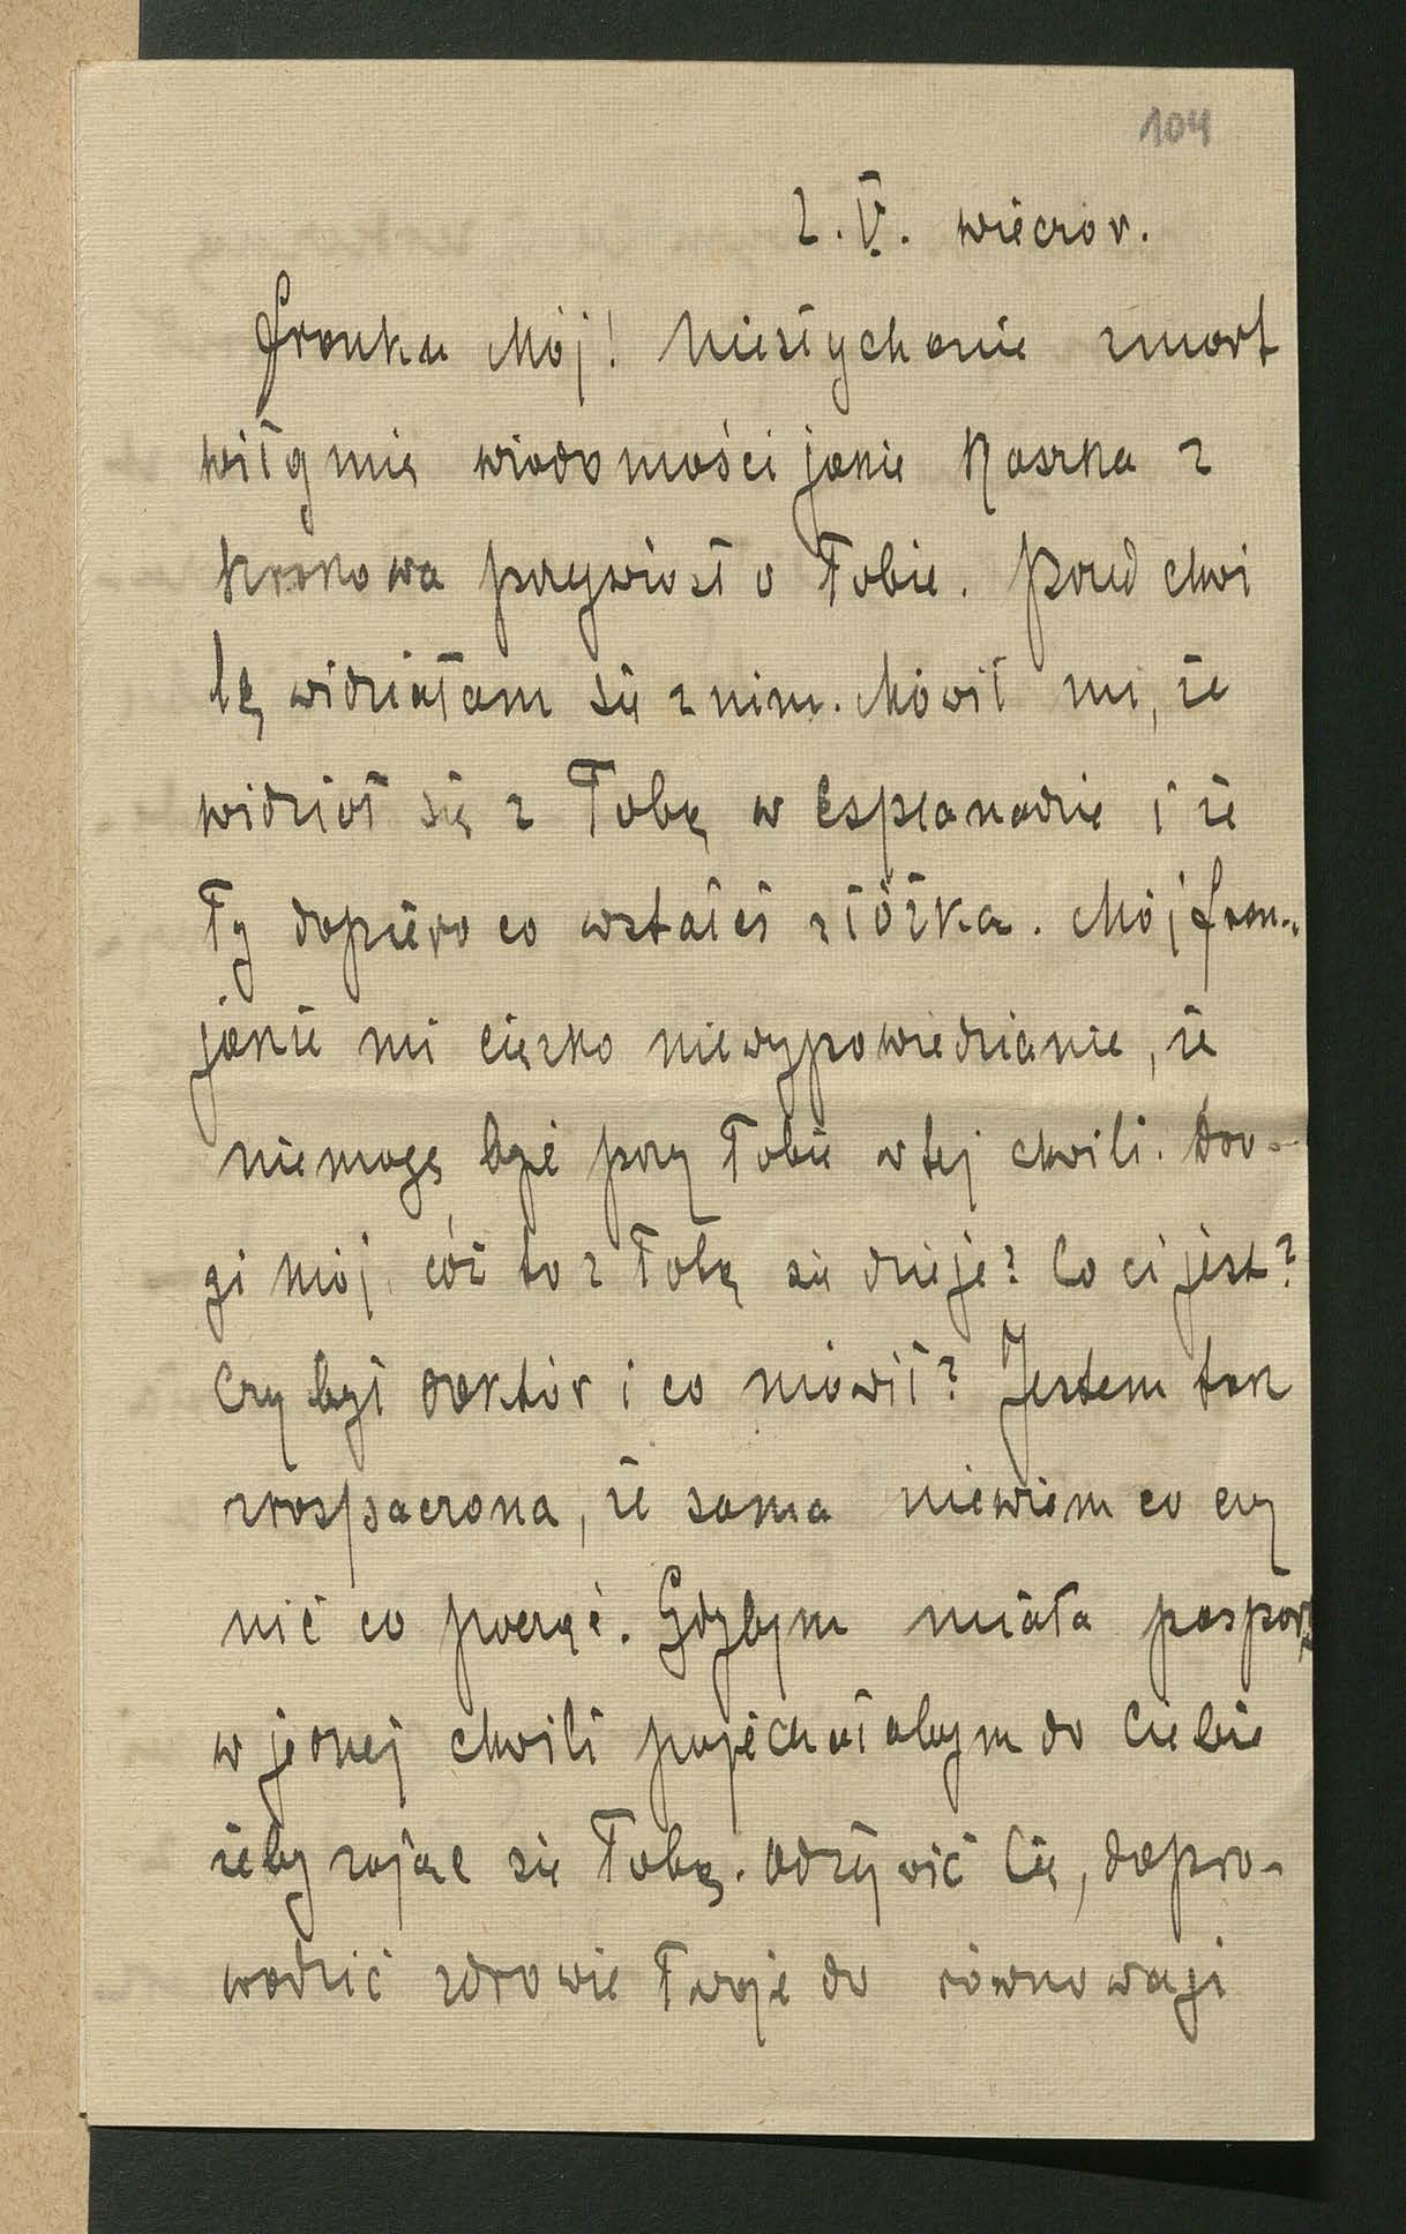 104
2. V. wieczor.
Franku Mój! Niesłychanie zmart
wiły mię wiadomości jakie Kaszka z
Krakowa przywiozł o Tobie. Przed chwi
lą widziałam się z nim. Mówił mi, że
widział się z Tobą w Esplanadzie i że
Ty dopiero co wstałeś z łóżka. Mój Fran-
jakże mi ciężko niewypowiedzianie, że
niemogę być przy Tobie w tej chwili. Dro-
gi mój cóż to z Tobą się dzieje? Co ci jest?
Czy był doktór i co mówił? Jestem tak
zrospaczona, że sama niewiem co czy
nić co począć. Gdybym miała paszport
w jednej chwili pojechałabym do Ciebie
żeby zająć się Tobą. Odżywić Cię, dopro-
wadzić zdrowie Twoje do równowagi